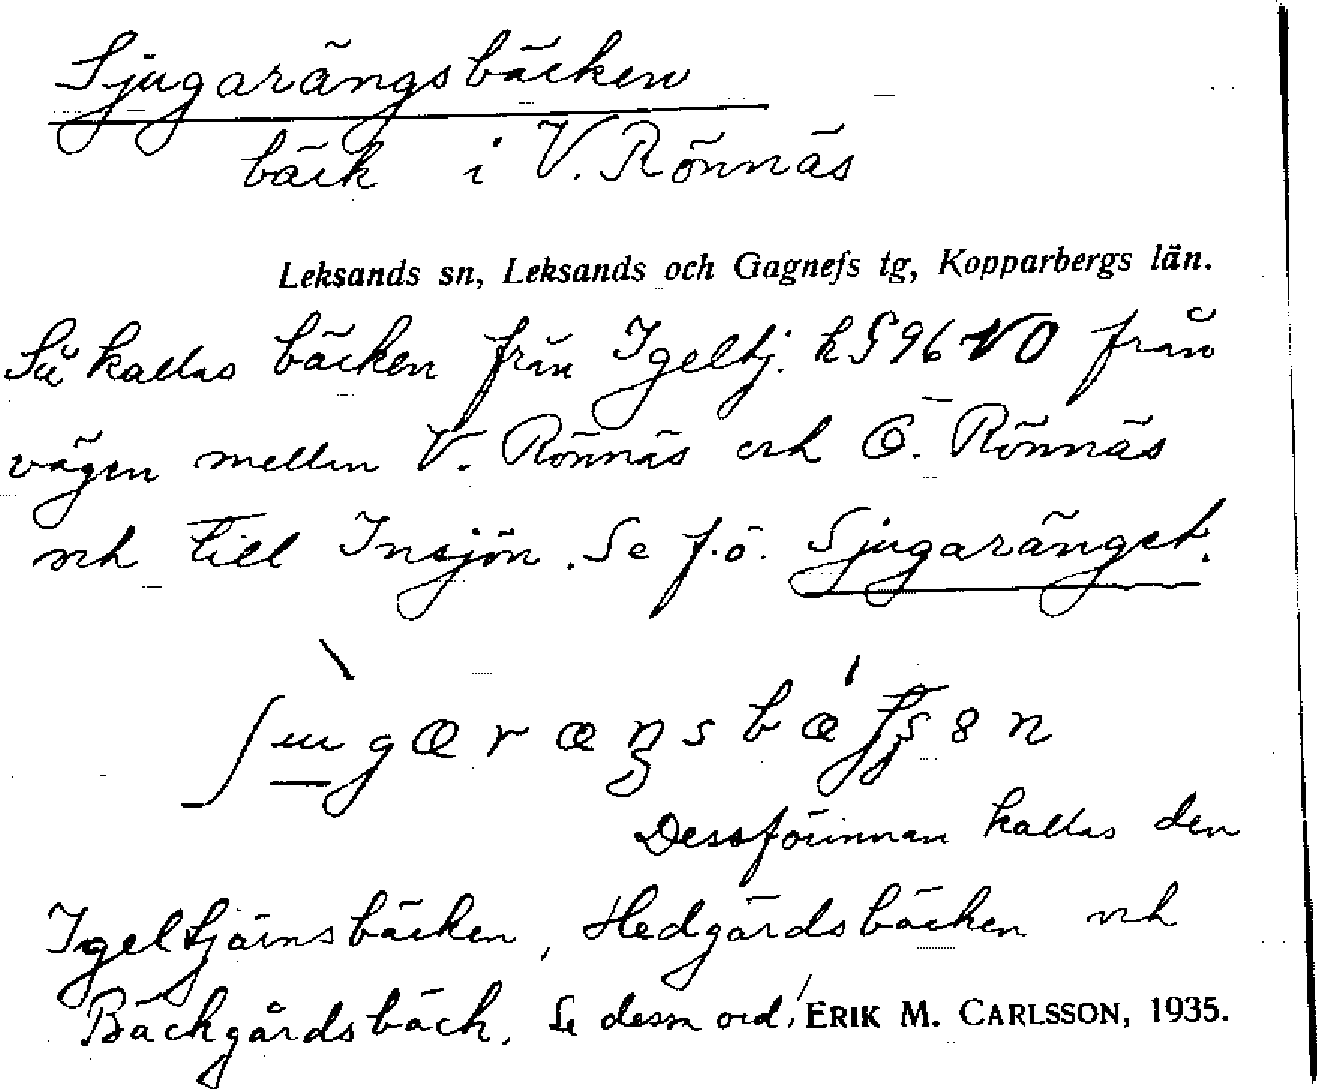 Sjugarängsbäcken
bäck i V. Rönnäs
Leksands sn, Leksands och Gagnefs tg, Kopparbergs län.
Så kallas bäcken från Igeltj. k § 96 NO från
vägen mellan V. Rönnäs och Ö. Rönnäs
och till Insjön. Se f.ö. Sjugaränget.
Dessförinnan kallas den
Igeltjärnsbäcken, Hedgårdsbäcken och
Bäckgårdsbäck. Se dessa ord! ERIK M. CARLSSON, 1935.